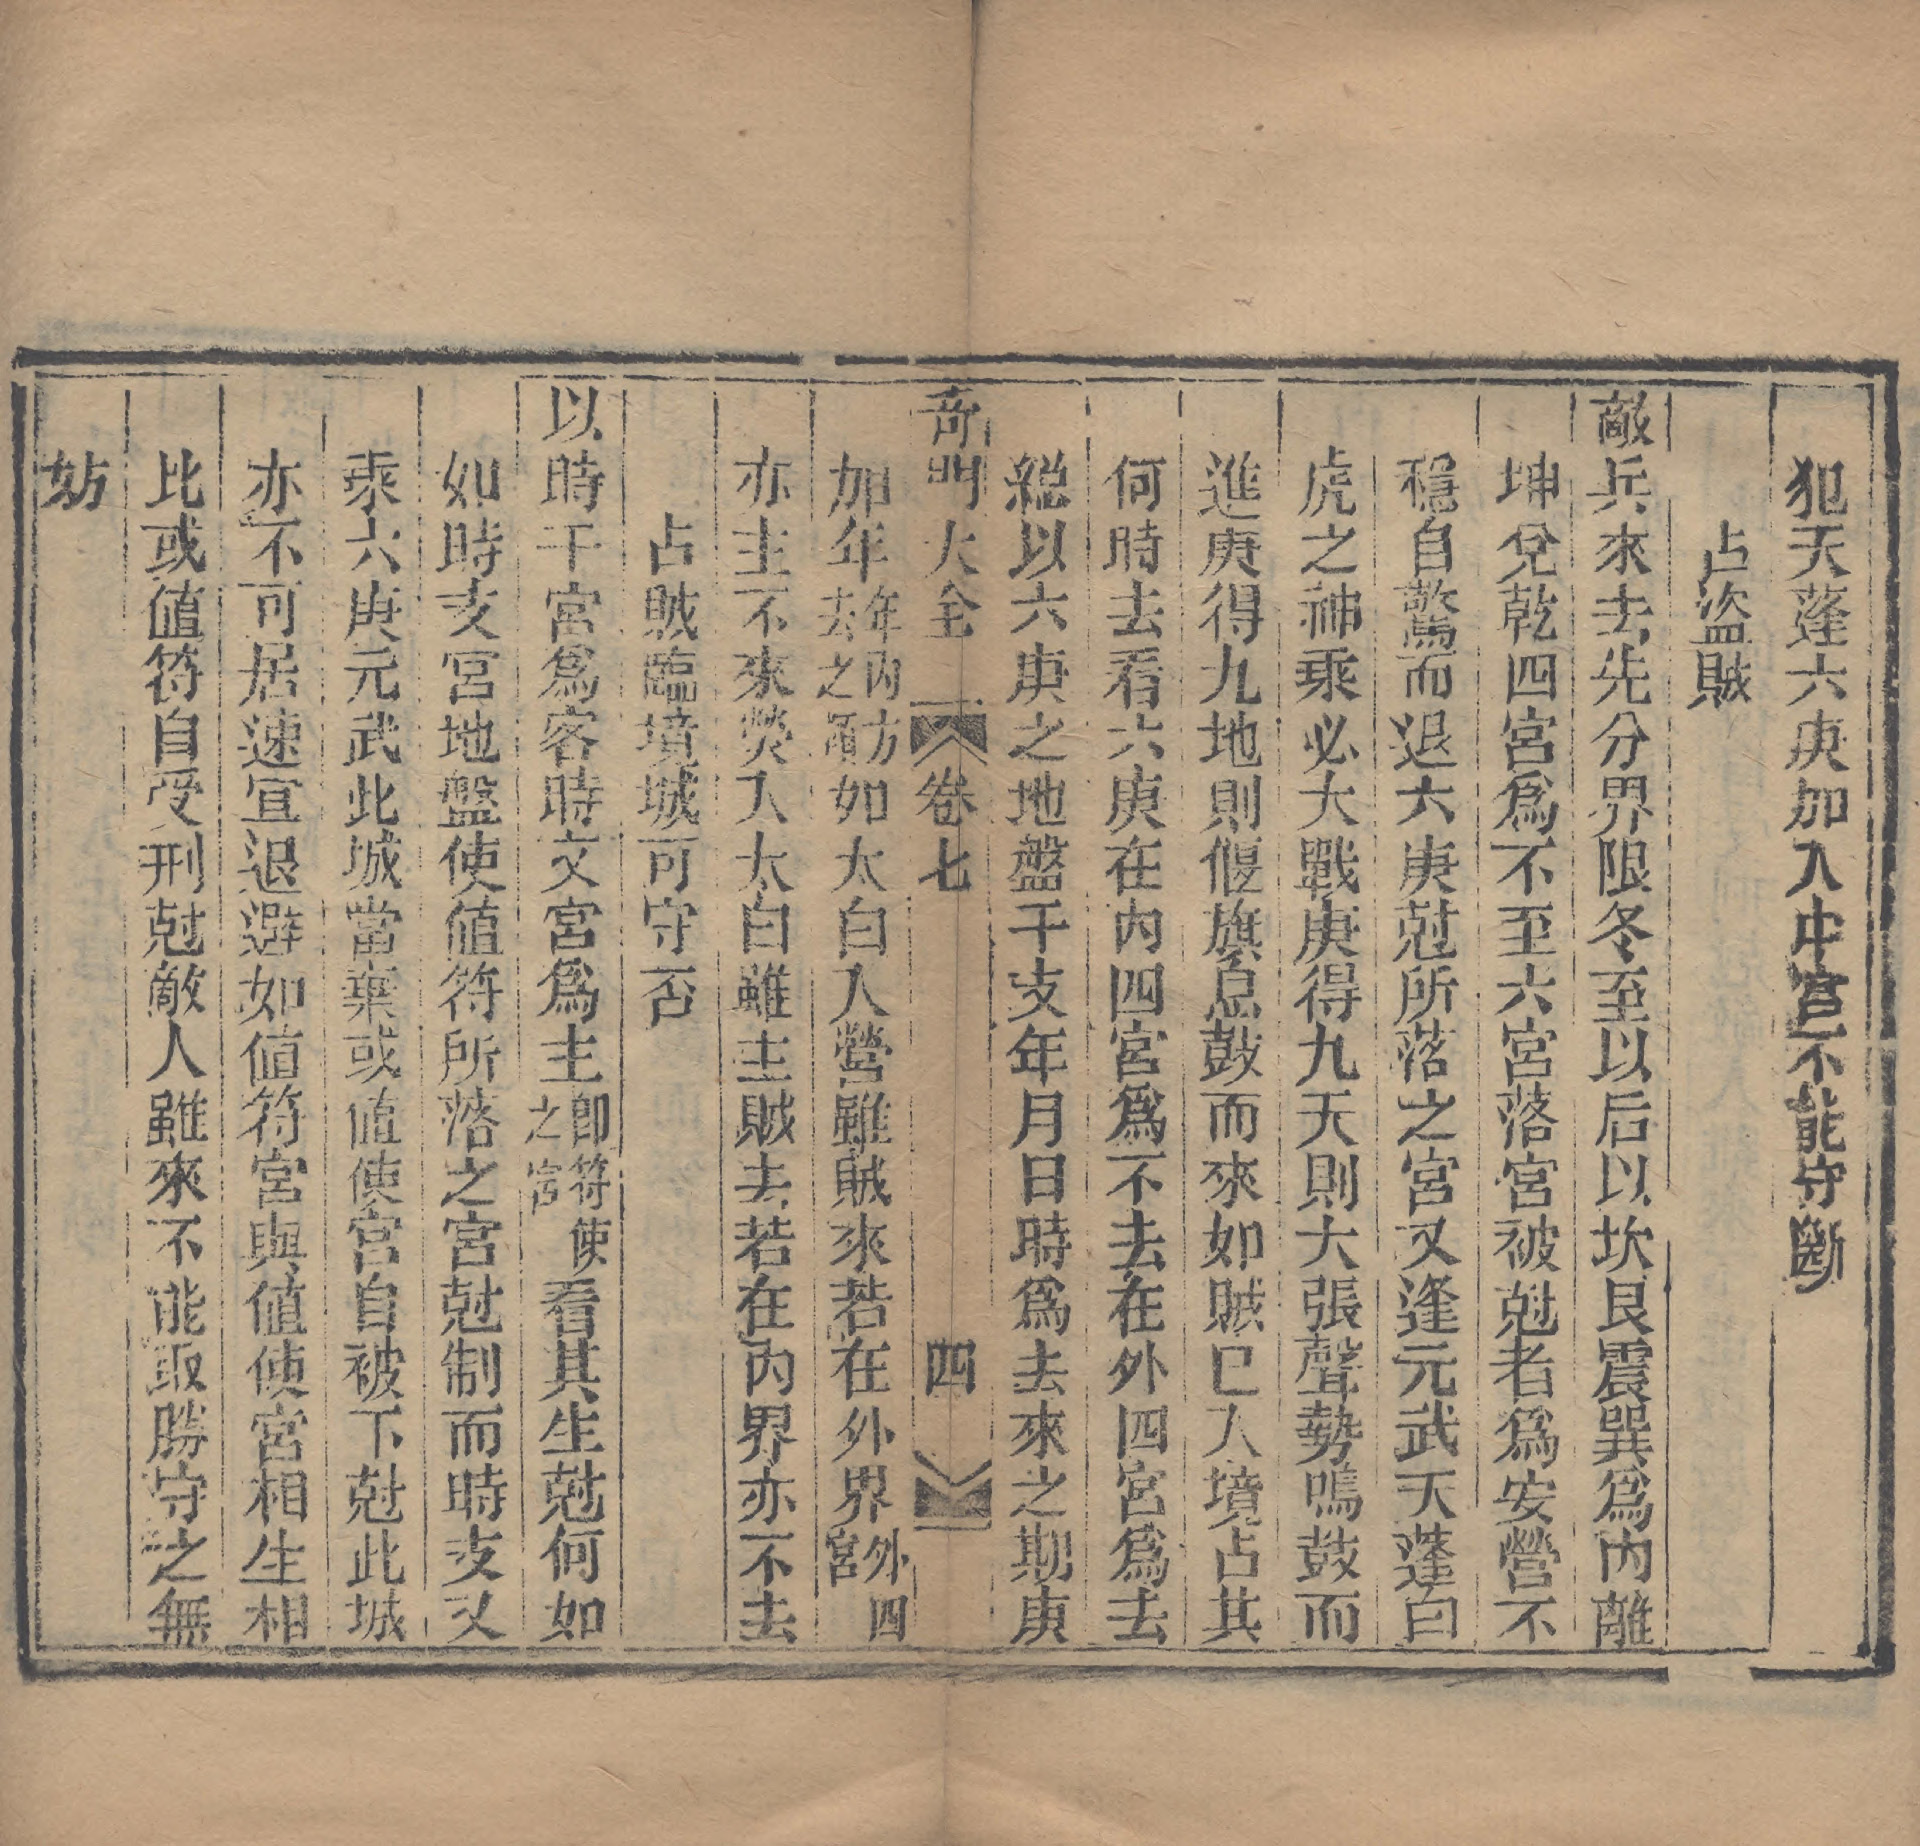 犯天蓬六庚加入中宮不能守斷
占盗賊
敵兵來去先分界限冬至以后以坎艮震巽爲内離
坤兌乾四宮爲不至六宮落宮被尅者爲安營不
穩自驚而退六庚尅所落之宮又逢元武天蓬白
虎之神乘必大戰庚得九天則大張聲勢鳴鼓而
進庚得九地則偃旗息鼓而來如賊已入境占其
何時去看六庚在内四宮爲不去在外四宮爲去
総以六庚之地盤干支年月日時爲去來之期庚
奇門大全 卷七 四
加年年内方去之類如太白入營雖賊來若在外界外四宮
亦主不來熒入太白雖主賊去若在内界亦不去
占賊臨境城可守否
以時干宮爲客時文宮爲主卽符使之宮看其生尅何如
如時支宮地盤使值符所落之宮尅制而時支又
乘六庚元武此城當棄或値使宮自被下尅此城
亦不可居速宜退避如値符宮與値使宮相生相
比或値符自受刑尅敵人雖來不能取勝守之無
妨